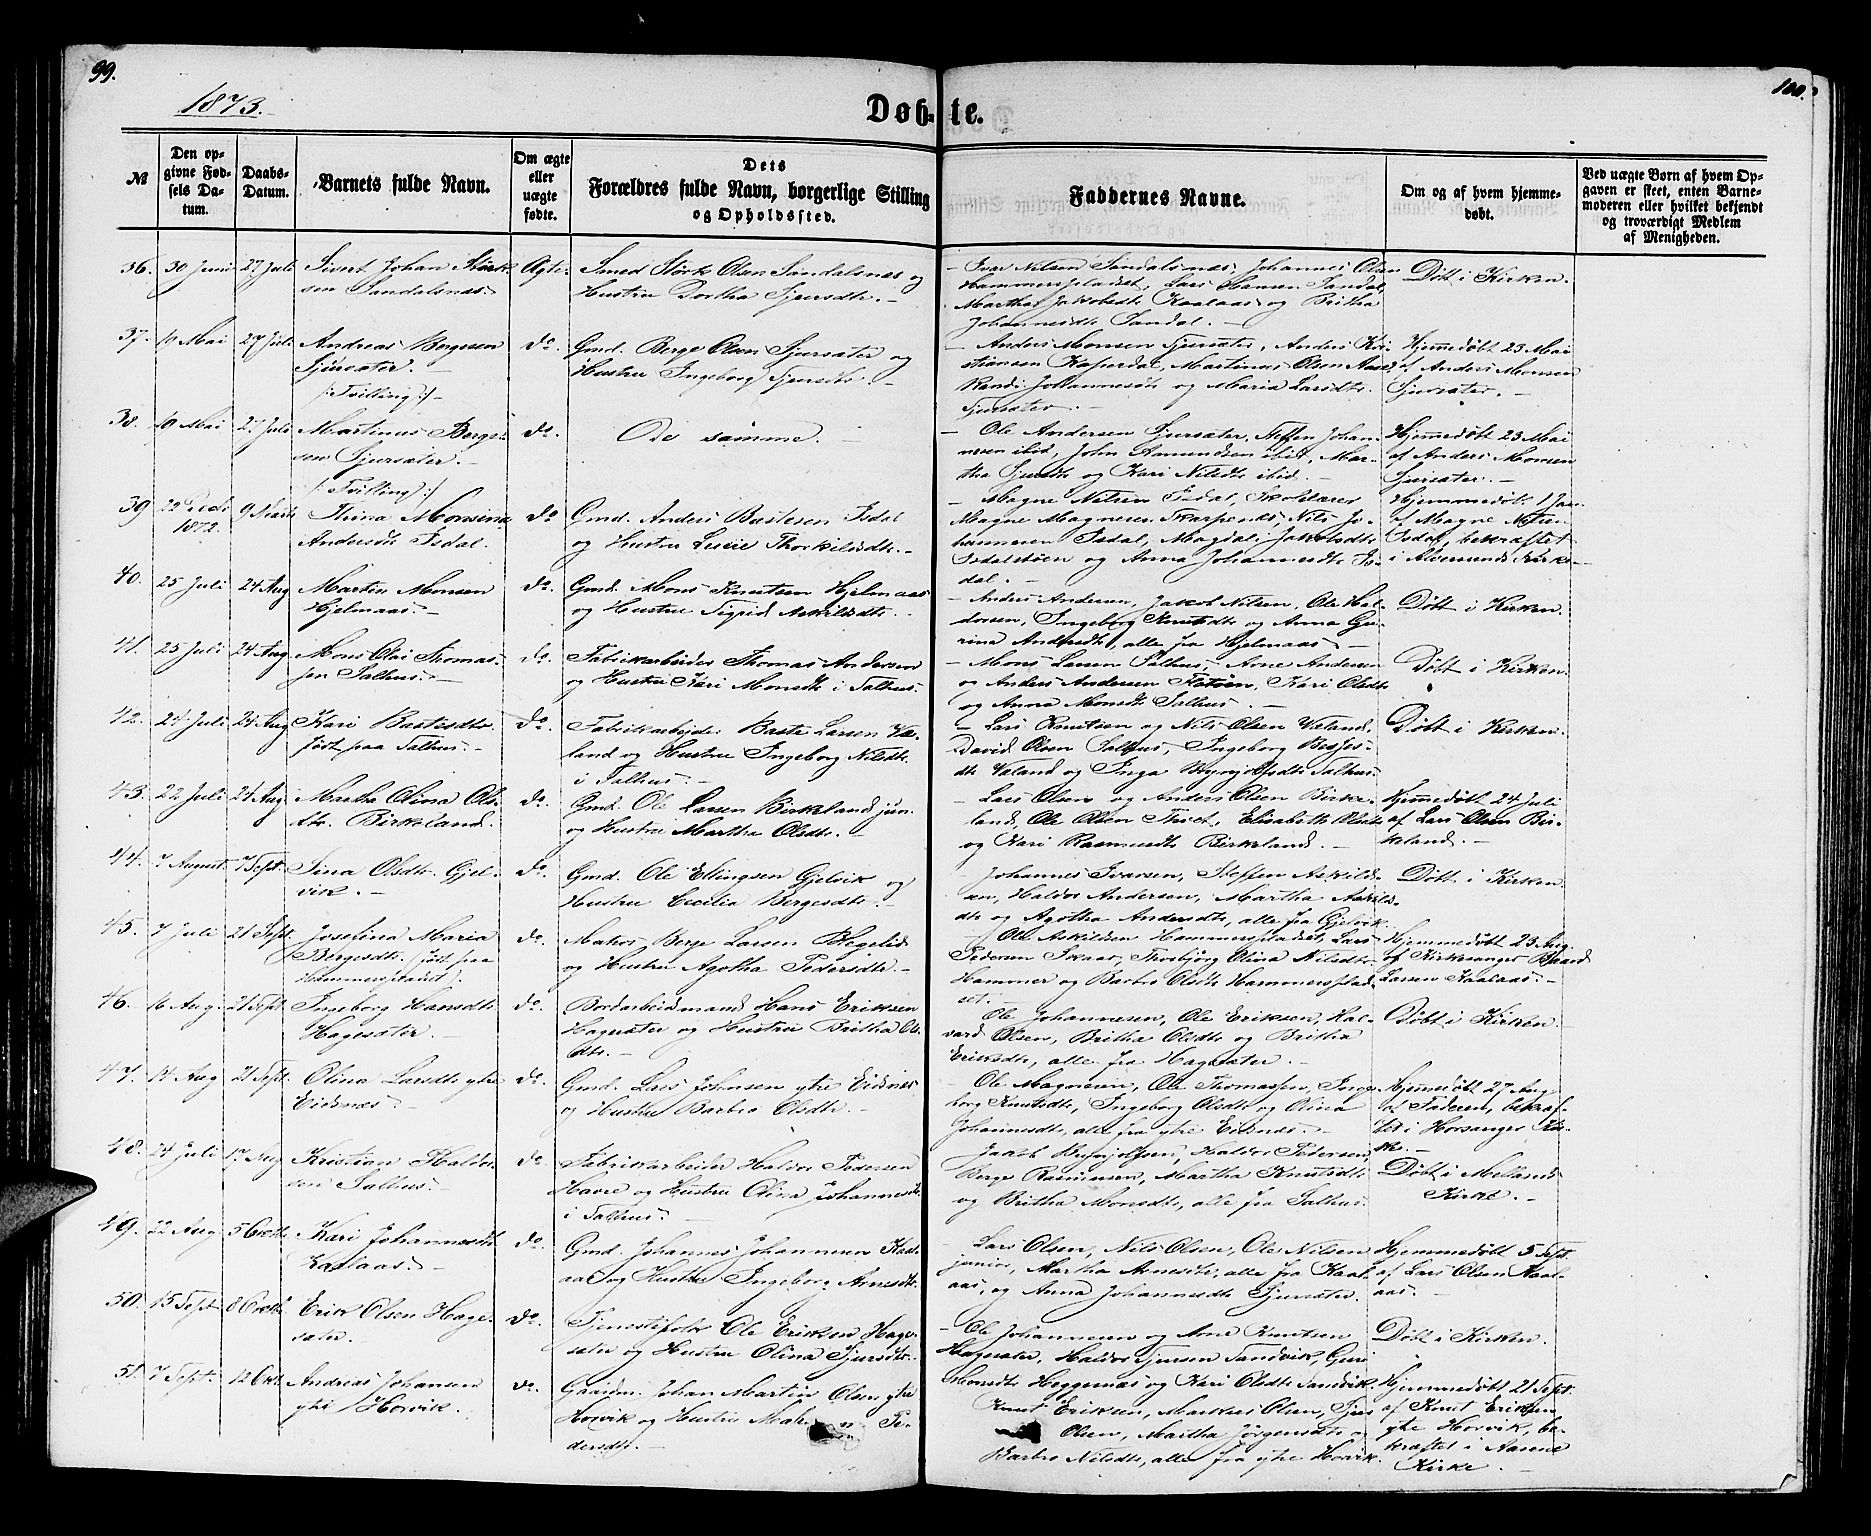 99.
100.
1873.
Døbte.
№
Den opgivne Fødsels Datum.
Daabs-Datum.
Barnets fulde Navn.
Om ægte eller uægte fødte.
Dets Forældres fulde Navn, borgerlige Stilling og Opholdssted.
Faddernes Navne.
Om og af hvem hjemmedøbt.
Ved uægte Børn af hvem Opgaven er skeet, enten Barnemoderen eller hvilket bekjendt og troværdigt Medlem af Menigheden.
36. 30 Juni 27 Juli Sivert Johan Størksen Sandalsnæs. Ægte. Smed Størk Olsen Sandalsnæs og Hustru Dortha Sjursdtr. – Ivar Nilsen Sandalsnæs, Johannes Olsen Hammerspladset, Lars Hansen Sandal, Martha Jakobsdtr Kaalaas og Britha Johannesdtr Sandal. – Døbt i Kirken.
37. 19 Mai 27 Juli Andreas Bergesen Sjursæter. – /: Tvilling :/ – do. Gmd. Berge Olsen Sjursæter og Hustru Ingeborg Sjursdtr. – Anders Monsen Sjursæter, Anders Kristiansen Kaperdal, Martinus Olsen Aase, Randi Johannesdtr og Maria Larsdtr Sjursæter. – Hjemmedøbt 23 Mai af Anders Monsen Sjursæter. –
38. 19 Mai 27 Juli Martinus Bergesen Sjursæter. – /: Tvilling :/ do. De samme. – Ole Andersen Sjursæter, Steffen Johannesen ibid, John Amundsen ibid, Martha Sjursdtr og Kari Nilsdtr ibid. – Hjemmedøbt 23 Mai af Anders Monsen Sjursæter. –
39 1872. 9 Marts Thina Monsina Andersdtr Isdal. do Gmd. Anders Bastesen Isdal og Hustru Lucie Thorkildsdtr. – Magne Nilsen Isdal, Skolelærer Magne Magnesen Skarpenæs, Nils Johannesen Isdal, Magdali Jakobsdtr Isdalstøen og Anna Johannesdtr Isdal. – Hjemmedøbt 1 Jan. af Magne Nilsen Isdal, bekræftet i Alversunds Kirke –
40. 25 Juli 24 Aug Martin Monsen Hjelmaas. – do. Gmd. Mons Knutsen Hjelmaas og Hustru Sigrid Askildsdtr. – Anders Andersen, Jakob Nilsen, Ole Haldorsen, Ingeborg Knutsdtr og Anna Gurina Andersdtr, alle fra Hjelmaas. – Døbt i Kirken.
41. 25 Juli 24 Aug. Mons Olai Thomassen Salhus. – do. Fabrikarbeider Thomas Andersen og Hustru Kari Monsdtr i Salhus. – Mons Larsen Salhus, Arne Andersen og Anders Andersen Flatøen, Kari Olsdtr og Anna Monsdtr Salhus. – Døbt i Kirken.
42. 24 Juli 24 Aug Kari Bastesdtr født paa Salhus. – do. Fabrikarbeider Baste Larsen Væland og Hustru Ingeborg Nilsdtr i Salhus. – Lars Knutsen og Nils Olsen Væland, David Olsen Salhus, Ingeborg dtr Væland og Inga Brynjolfsdtr Salhus. Døbt i Kirken.
43. 22 Juli 24 Aug. Martha Olina Olsdtr. Birkeland. do. Gmd. Ole Larsen Birkeland jun. og Hustru Martha Olsdtr. – Lars Olsen og Anders Olsen Birkeland, Ole Olsen Elisabeth Olsdtr og Kari Rasmusdtr Birkeland. – Hjemmedøbt 24 Juli af Lars Olsen Birkeland. –
44. 7 August. 7 Sept. Sina Olsdtr. Gjelvik. – do. Gmd. Ole Ellingsen Gjelvik og Hustru Cecilia Bergesdtr. – Johannes Ivarsen, Steffen Askildsen, Haldor Andersen, Martha Askildsdtr og Agotha Andersdtr, alle fra Gjelvik. Døbt i Kirken.
45. 7 Juli 21 Sept. Josefina Maria Bergesdtr. (født paa Hammerspladset). do. Matros Berge Larsen og Hustru Agotha Pedersdtr. – Ole Askildsen Hammerspladset, Lars Pedersen Skaar, Olina Nilsdtr Hammer og Barbro Olsdtr Hammerspladset. – Hjemmedøbt 23 Aug. af Kirkesanger Baard Larsen Kaalaas. –
46. 16 Aug. 21 Sept. Ingeborg Hansdtr Hagesæter. – do. Bordarbeidsmand Hans Eriksen Hagesæter og Hustru Britha Olsdtr. – Ole Johannesen, Ole Eriksen, Halvard Olsen, Britha Olsdtr og Britha Eriksdtr, alle fra Hagesæter. – Døbt i Kirken.
47. 14 Aug 21 Sept. Olina Larsdtr ytre Eidsnæs. – do. Gmd. Lars Johnsen ytre Eidsnæs og Hustru Barbro Olsdtr. – Ole Magnesen, Ole Thomassen, Ingeborg Knutsdtr, Ingeborg Olsdtr og Olina Johannesdtr, alle fra ytre Eidsnæs. – Hjemmedøbt 27 Aug af Faderen, bekræftet i Horsanger Kirke. –
48. 24 Juli 17 Aug Kristian Haldorsen Salhus. – do. Fabrikarbeider Haldor Pedersen Havre og Hustru Olina Johannesdtr i Salhus. – Jakob Brynjolfsen, Haldor Pedersen, Berge Rasmusen, Martha Knutsdtr og Britha Monsdtr, alle fra Salhus. Døbt i Mellands Kirke. –
49. 22 Aug 5 Octb. Kari Johannesdtr Kaalaas. – do. Gmd. Johannes Johannesen Kaalaas og Hustru Ingeborg Arnesdtr. – Lars Olsen, Nils Olsen, Ole Nilsen junior, Martha Arnesdtr, alle fra Kaalaas, og Anna Johannesdtr Sjursæter. Hjemmedøbt 5 Sept. af Lars Olsen Kaalaas. –
50. 15 Sept 8 Octb. Erik Olsen Hagesæter. – do. Tjenestefolk Ole Eriksen Hagesæter og Hustru Olina Sjursdtr. – Ole Johannesen og Arne Knutsen Hagesæter, Haldor Sjursen Sandvik, Guri Monsdtr Heggernæs og Kari Olsdtr Sandvik. Døbt i Kirken.
51. 7 Sept. 12 Okt. Andreas Johansen ytre Horvik. – do. Gaardm. Johan Martin Olsen ytre Horvik og Hustru Pedersdtr. – Knut Eriksen, Markus Olsen, Olsen, Martha Jørgensdtr og Barbro Nilsdtr, alle fra ytre Horvik. Hjemmedøbt 21 Sept. af Knut Eriksen ytre Horvik, bekræftet i Aasene Kirke. –